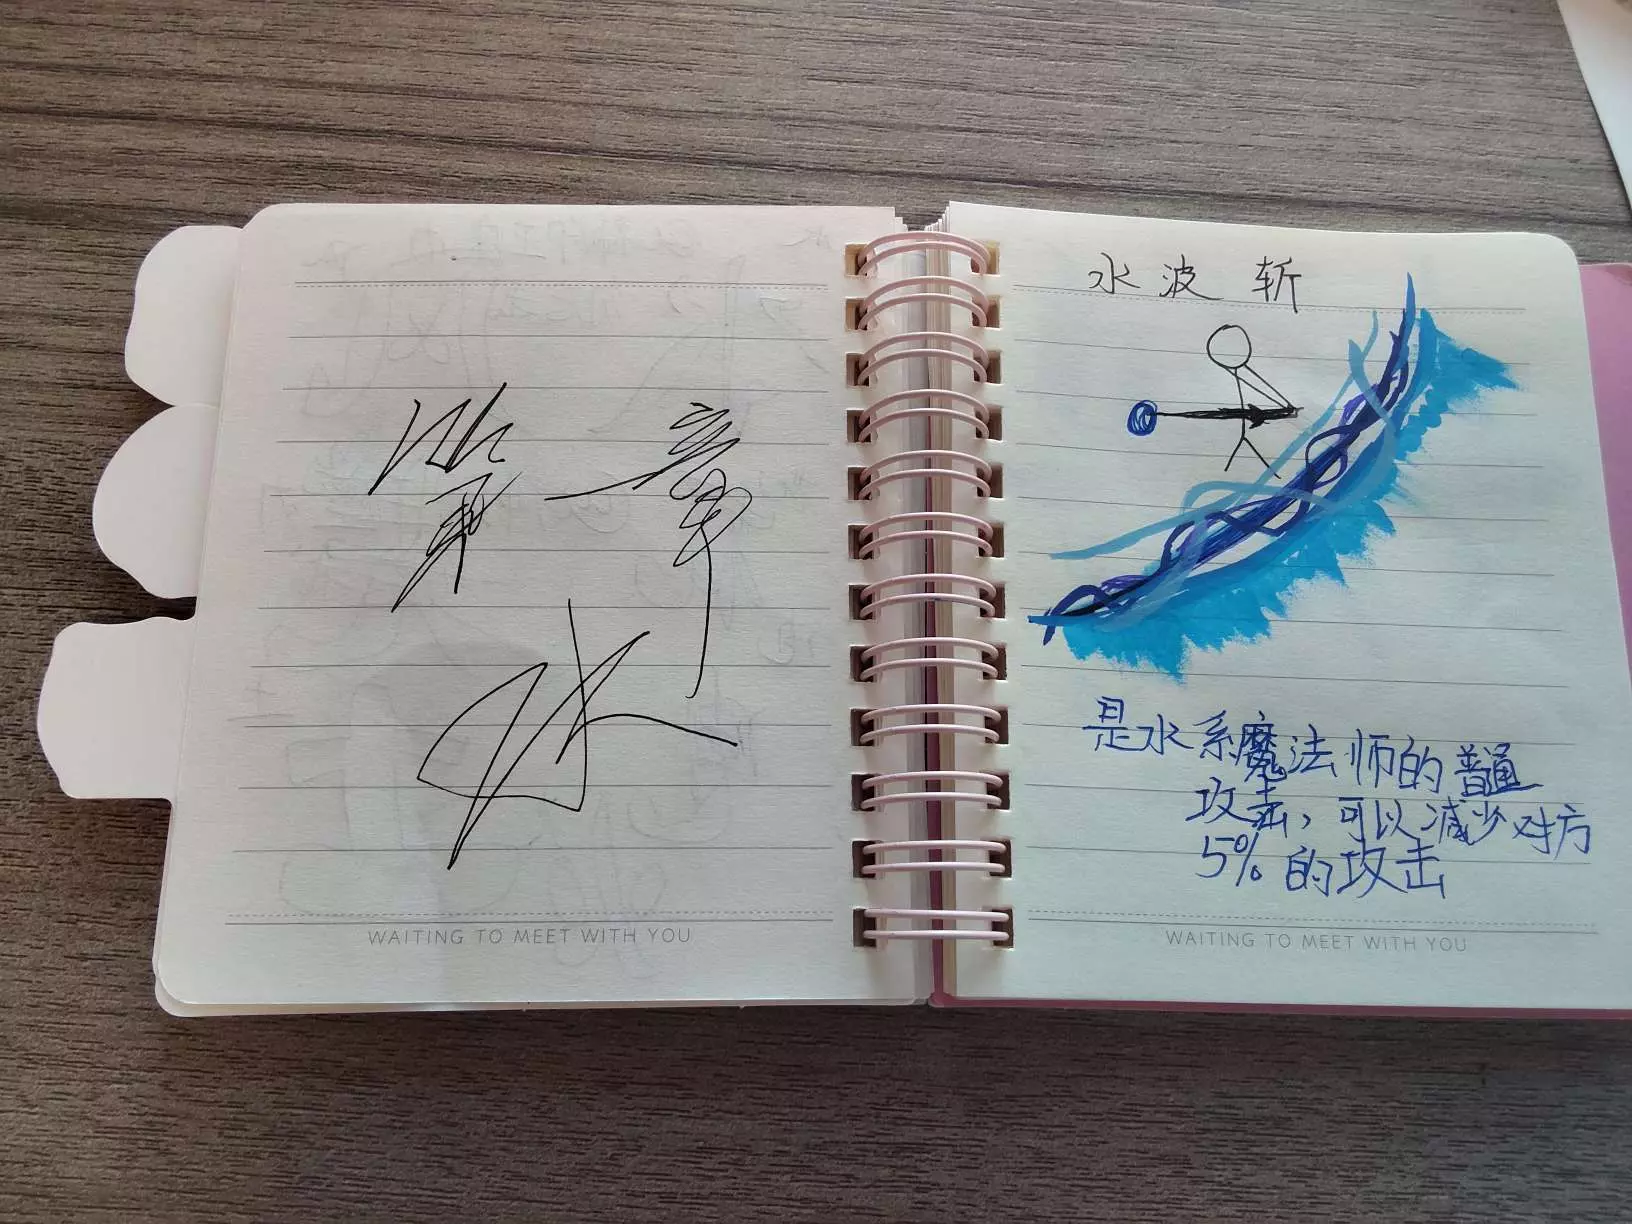 第一章
水
WAITING TO MEET WITH YOU
水波斩
是水系魔法师的普通
攻击，可以减少对方
5%的攻击
WAITING TO MEET WITH YOU